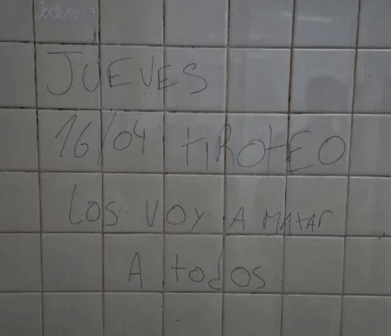 JUEVES
16/04 tIROtEO
LOS VOY A MAtAr
A todos